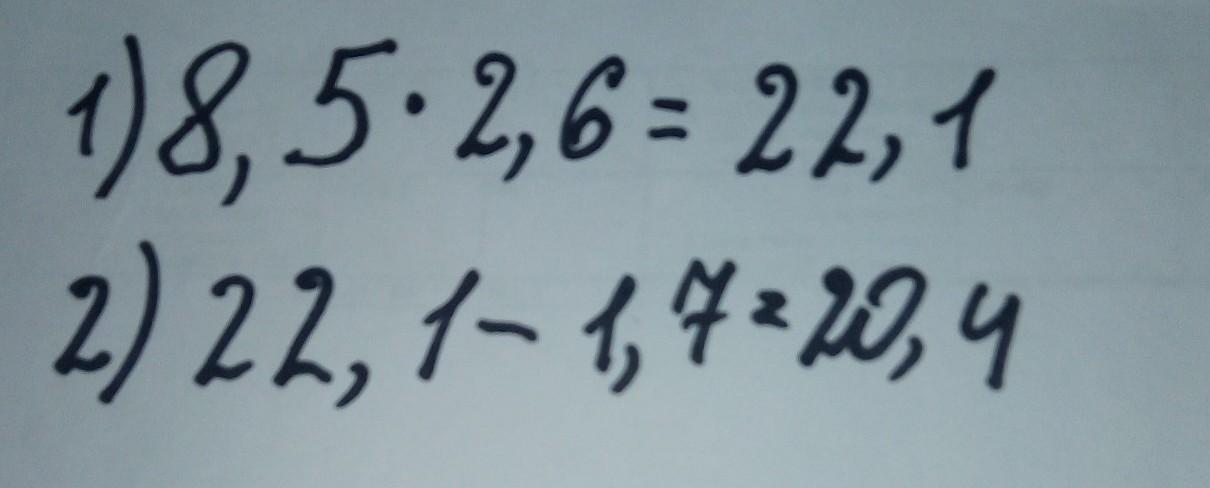 1) 8,5·2,6=22,1
2) 22,1-1,7=20,4